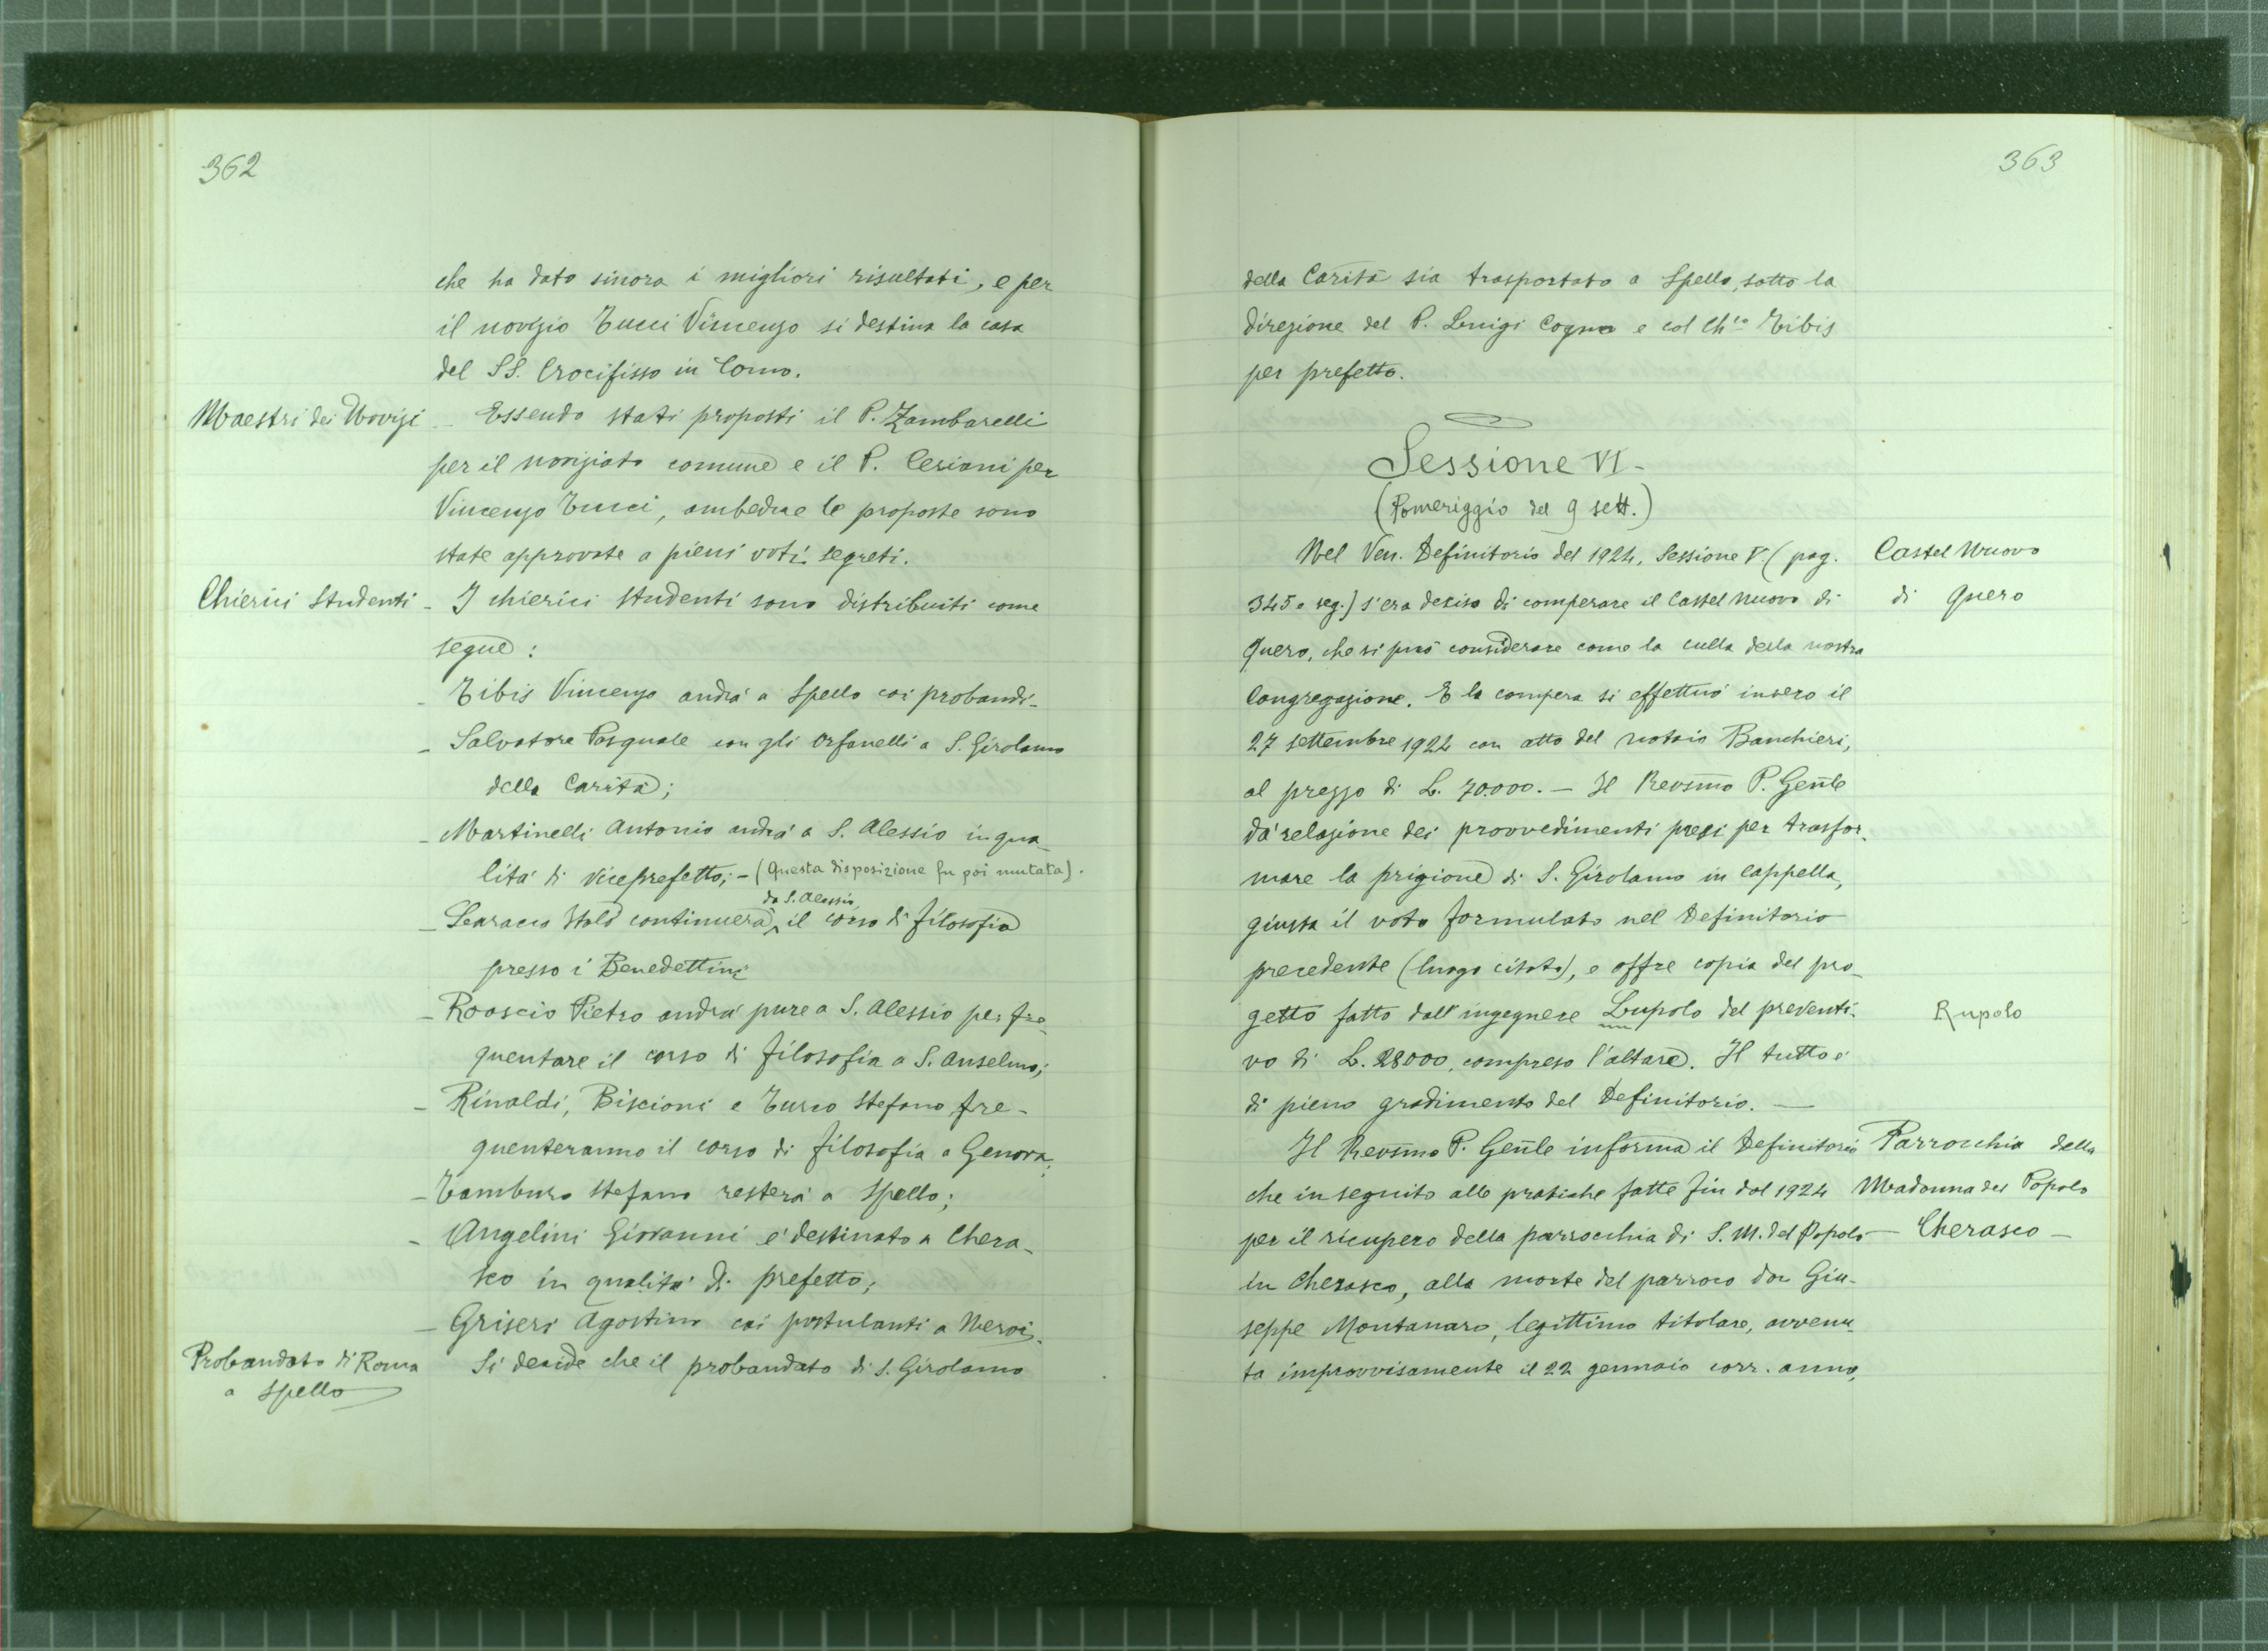 362
che ha dato sinora i migliori risultati, e per
il novizio Tucci Vincenzo si destina la casa
del SS. Crocifisso in Como.
Maestri dei Novizi
- Essendo stati proposti il P. Zambarelli
per il noviziato comune e il P. Ceriani per
Vincenzo Tucci, ambedue le proposte sono
state approvate a pieni voti segreti.
Chierici studenti
- I chierici studenti sono distribuiti come
segue:
- Tibis Vincenzo andrà a Spello coi probandi -
- Salvatore Pasquale con gli orfanelli a S. Girolamo
della Carità;
- Martinelli Antonio andrà a S. Alessio in qua-
lità di viceprefetto; - (Questa disposizione fu poi mutata).
da S. Alessio,
- continuerà il corso di filosofia
presso i Benedettini
- Rooscio Pietro andrà pure a S. Alessio per fre-
quentare il corso di filosofia a S. Anselmo;
- Rinaldi, Biscioni e Turco Stefano fre-
quenteranno il corso di filosofia a Genova;
- Tamburo Stefano resterà a Spello;
- Angelini Giovanni è destinato a Chera-
sco in qualità di prefetto;
- Griseri Agostino coi postulanti a Nervi.
Probandato di Roma
a Spello
Si decide che il probandato di S. Girolamo
363
della Carità sia trasportato a Spello, sotto la
direzione del P. Luigi Cogno e col Ch.co Tibis
per prefetto.
Sessione VI -
(Pomeriggio del 9 sett.)
Nel Ven. Definitorio del 1924, Sessione V. (pag.
Castel Nuovo
345 e seg.) s'era deciso di comperare il Castel Nuovo di
di Quero
Quero, che si può considerare come la culla della nostra
Congregazione. E la compera si effettuò invero il
27 settembre 1924 con atto del notaio Banchieri,
al prezzo di L. 70.000. - Il Revsmo P. Genle
dà relazione dei provvedimenti presi per trasfor-
mare la prigione di S. Girolamo in Cappella,
giusta il voto formulato nel Definitorio
precedente (luogo citato), e offre copia del pro-
getto fatto dall'ingegnere Lupolo del preventi-
Rupolo
vo di L. 28000, compreso l'altare. Il tutto è
di pieno gradimento del Definitorio. -
Il Revsmo P. Genle informa il Definitorio
Parrocchia della
che in seguito alle pratiche fatte fin dal 1924
Madonna del Popolo
per il ricupero della parrocchia di S. M. del Popolo
- Cherasco -
in Cherasco, alla morte del parroco don Giu-
seppe Montanaro, legittimo titolare, avvenu-
ta improvvisamente il 22 gennaio corr. anno,